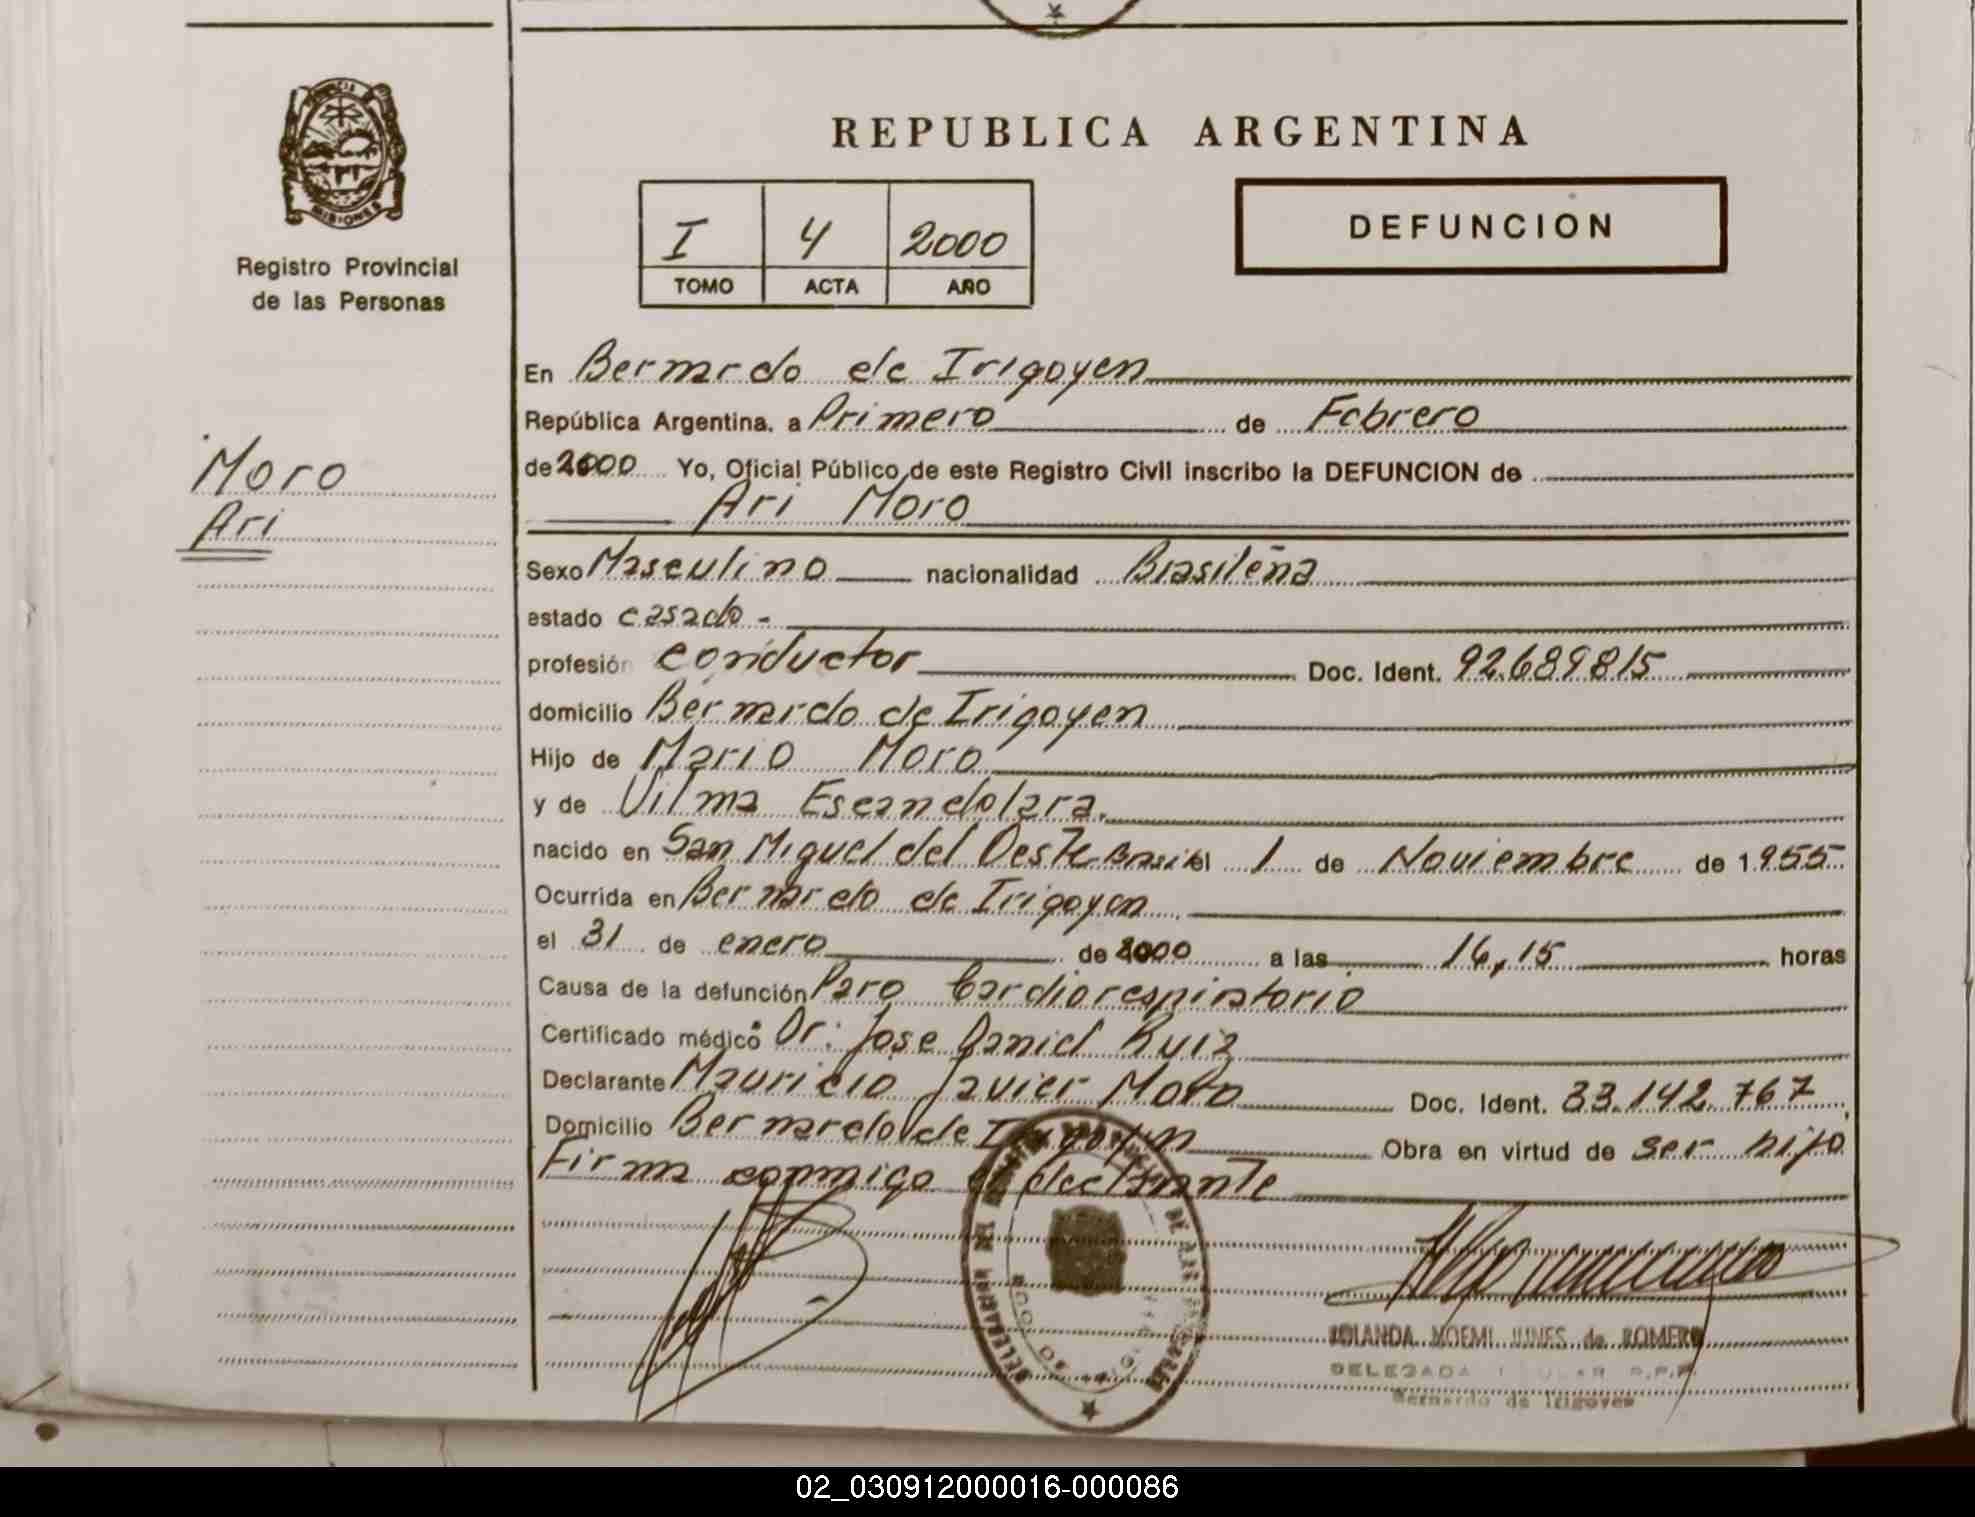 PROVINCIA
MISIONES
Registro Provincial
de las Personas
Moro
Ari
REPUBLICA ARGENTINA
I 4 2000
TOMO ACTA AÑO
DEFUNCION
En Bernardo de Irigoyen
República Argentina, a Primero de Febrero
de 2000 Yo, Oficial Público de este Registro Civil inscribo la DEFUNCION de
Ari Moro
Sexo Masculino nacionalidad Brasileña
estado casado -
profesión conductor Doc. Ident. 92.689.815
domicilio Bernardo de Irigoyen
Hijo de Mario Moro
y de Vilma Escandolara.
nacido en San Miguel del Oeste Brasil el 1 de Noviembre de 1.955
Ocurrida en Bernardo de Irigoyen
el 31 de enero de 2000 a las 16,15 horas
Causa de la defunción Paro Cardiorespiratorio
Certificado médico Dr: Jose Daniel Ruiz
Declarante Mauricio Javier Moro Doc. Ident. 33.142.767
Domicilio Bernardo de Irigoyen Obra en virtud de ser hijo
Firma conmigo el declarante
DE ROMERO
DELEGADA R.P.P.
Bernardo de Irigoyen
02_030912000016-000086